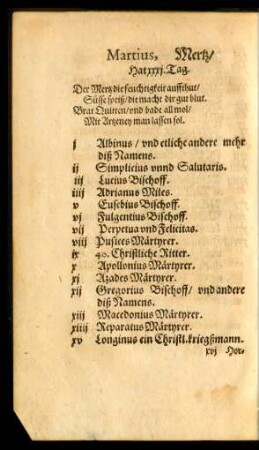 Martius, Mertz/
Hat xxxj. Tag.
Der Mertz die feuchtigkeit auffthut/
Süsse speiß/die macht dir gut blut.
Brat Quitten/vnd bade all mol/
Mit Artzeney man lassen sol.
j Albinus / vnd etliche andere mehr
diß Namens.
ij Simplicius vnnd Salutaris.
iij Lucius Bischoff.
iiij Adrianus Miles.
v Eusebius Bischoff.
vj Fulgentius Bischoff.
vij Perpetua vnd Felicitas.
viij Pusices Märtyrer.
ix 40. Christliche Ritter.
x Apollonius Märtyrer.
xj Azades Märtyrer.
xij Gregorius Bischoff/ vnd andere
diß Namens.
xiij Macedonius Märtyrer.
xiiij Reparatus Märtyrer.
xv Longinus ein Christl. kriegßmann.
xvj Hor-